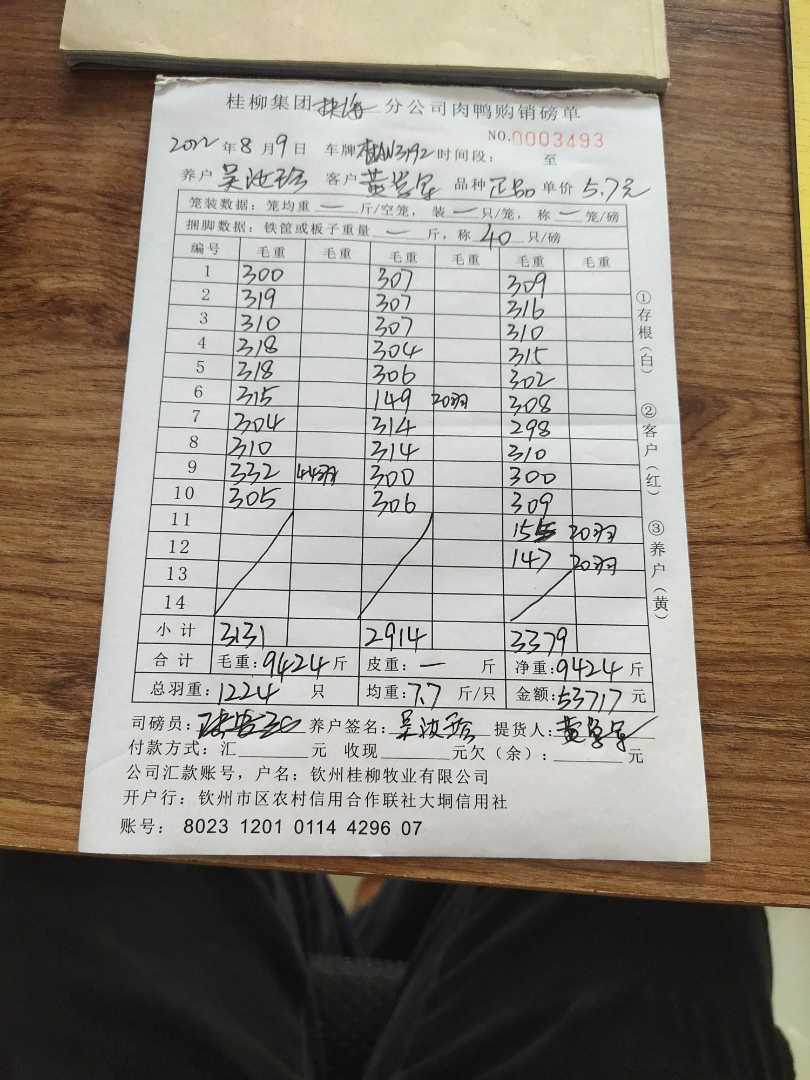 桂柳集团 分公司肉鸭购销磅单
NO.0003493
2022年8月9日 车牌桂AN3192时间段： 至
养户吴汝珍 客户 品种正品单价5.7元
笼装数据：笼均重一斤/空笼，装一只/笼，称一笼/磅
捆脚数据：铁筐或板子重量一斤，称40只/磅
编号 毛重 毛重 毛重 毛重 毛重 毛重
1 300 307 309
2 319 307 316
3 310 307 310
4 318 304 315
5 318 306 302
6 315 149 20羽 308
7 304 314 298
8 310 314 310
9 332 44羽 300 300
10 305 306 309
11 155 20羽
12 147 20羽
13
14
小计 3131 2914 3379
合计 毛重：9424斤 皮重：一 斤 净重：9424斤
总羽重：1224 只 均重：7.7 斤/只 金额：53717元
司磅员： 养户签名：吴汝珍 提货人：
付款方式：汇 元 收现 元欠（余）： 元
公司汇款账号，户名：钦州桂柳牧业有限公司
开户行：钦州市区农村信用合作联社大垌信用社
账号： 8023 1201 0114 4296 07
①存根（白）
②客户（红）
③养户（黄）